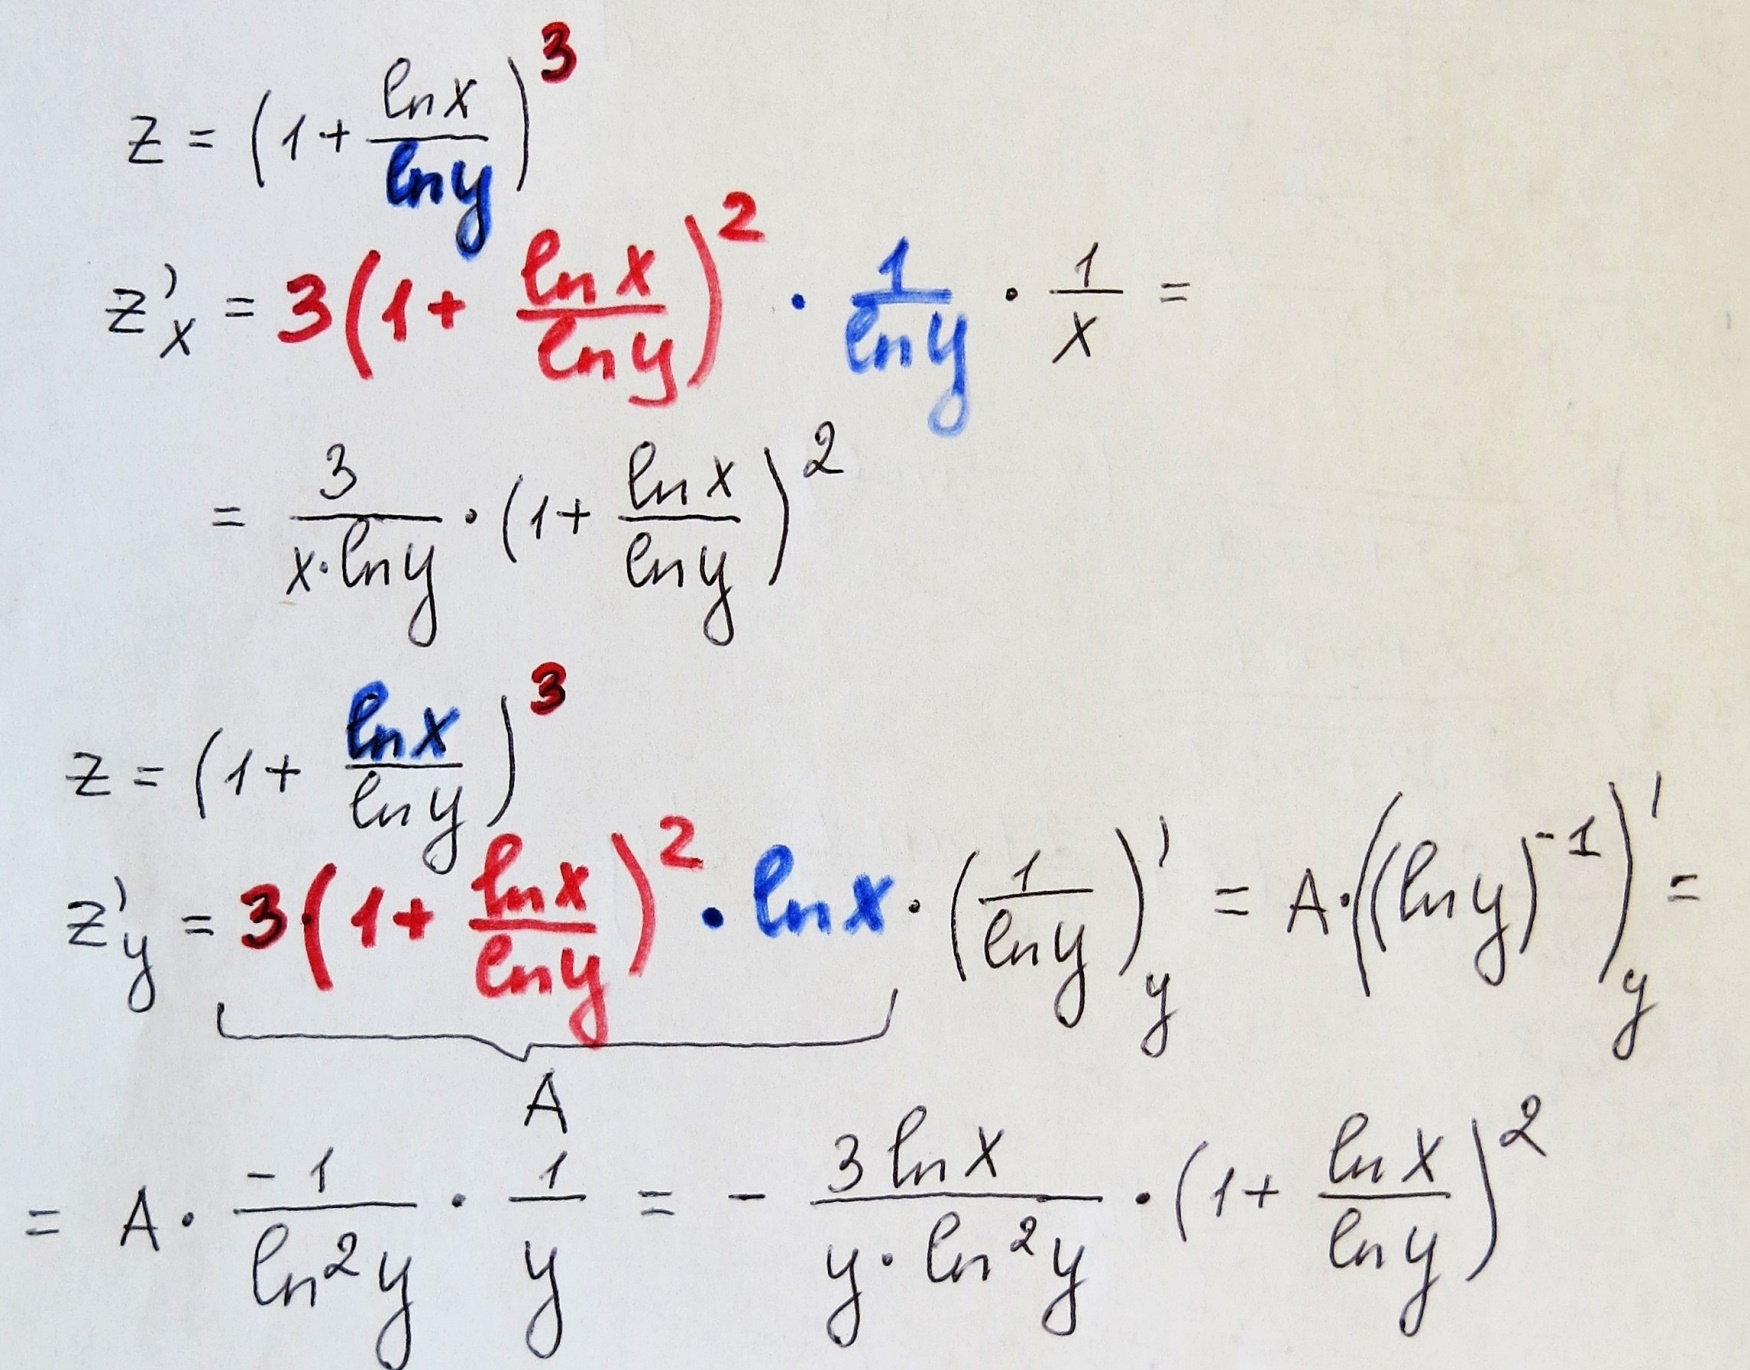 z = (1 + ln x / ln y)^3
z'_x = 3(1 + ln x / ln y)^2 · 1 / ln y · 1 / x =
= 3 / x · ln y · (1 + ln x / ln y)^2
z = (1 + ln x / ln y)^3
z'_y = 3·(1 + ln x / ln y)^2 · ln x · (1 / ln y)'_y = A · ((ln y)^-1)'_y =
A
= A · -1 / ln^2 y · 1 / y = - 3 ln x / y · ln^2 y · (1 + ln x / ln y)^2